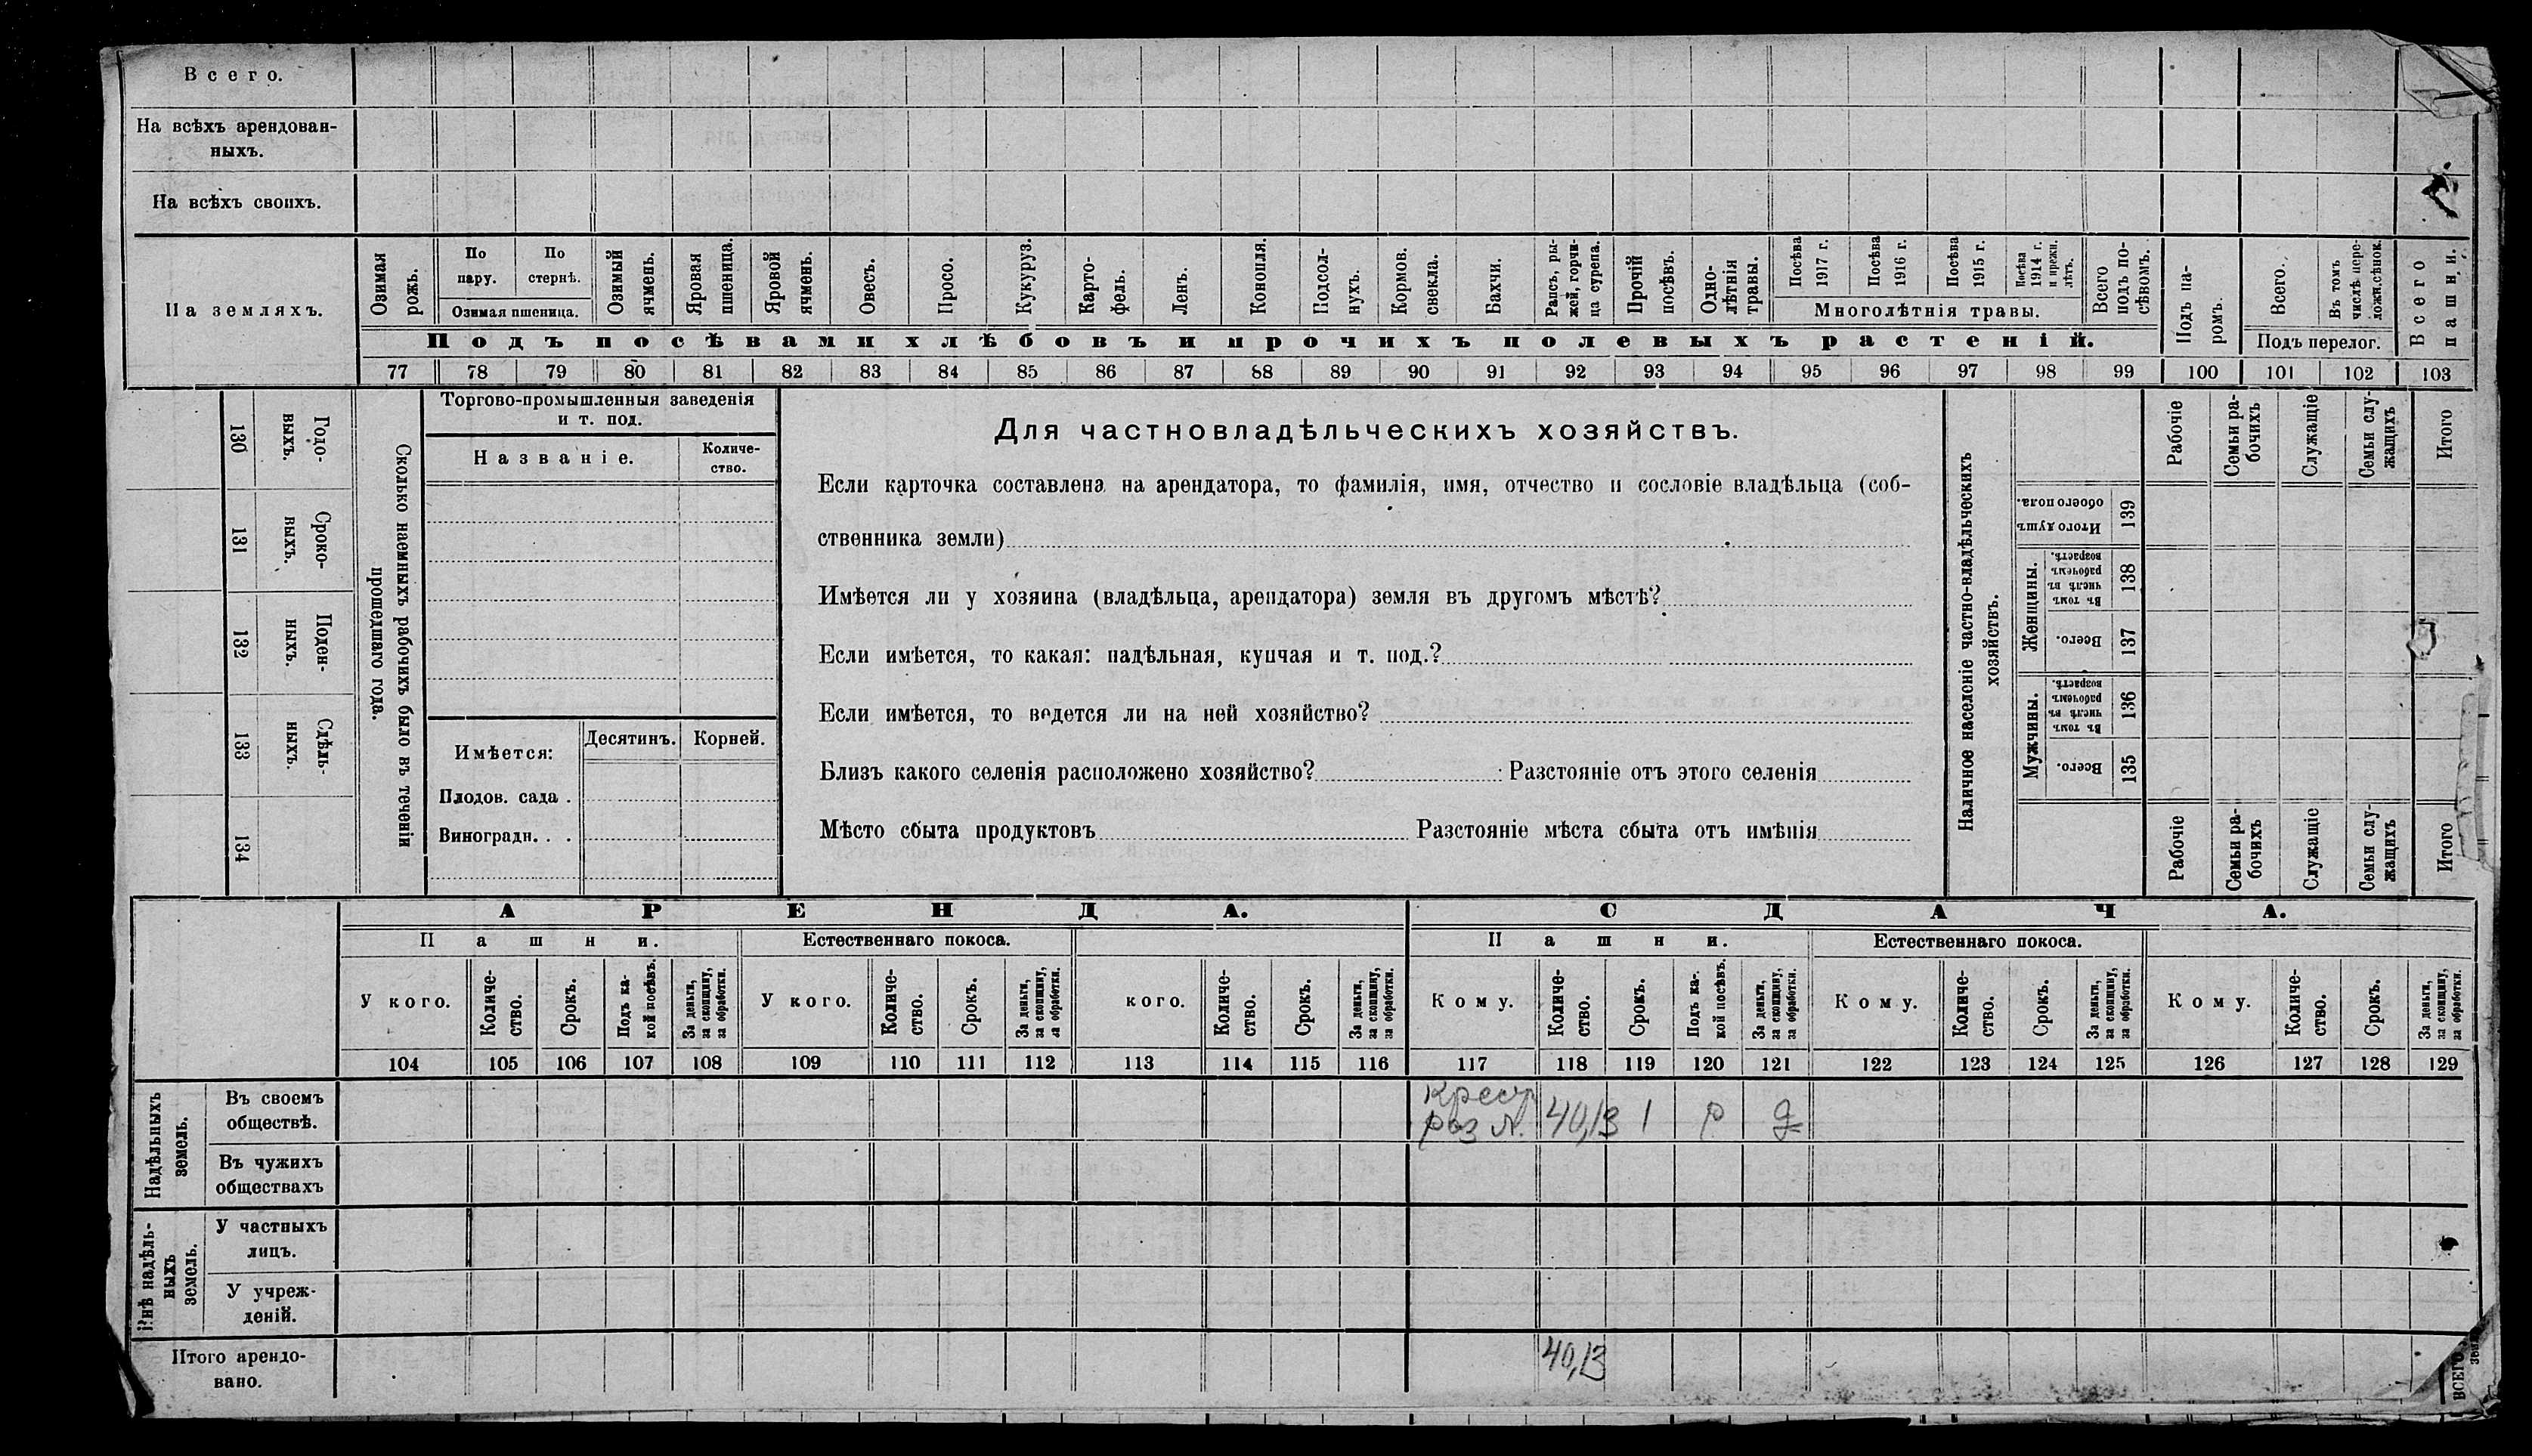 Всего.
На всѣхъ арендован-
ныхъ.
На всѣхъ своихъ.
На земляхъ.
Озимая
рожь.
По
пару.
По
стернѣ.
Озимая пшеница.
Озимый
ячмень.
Яровая
пшеница.
Яровой
ячмень.
Овесъ.
Просо.
Кукуруз.
Карто-
фель.
Ленъ.
Конопля.
Подсол-
нухъ.
Кормов.
свекла.
Бахчи.
Рапсъ, ры-
жей, горчи-
ца сурепа.
Прочій
посѣвъ.
Одно-
лѣтнія
травы.
Посѣва
1917 г.
Посѣва
1916 г.
Посѣва
1915 г.
Посѣва
1914 г.
и прежн.
лѣтъ.
Многолѣтнія травы.
Всего
подъ по-
сѣвомъ.
Подъ посѣвами хлѣбовъ и прочихъ полевыхъ растеній.
Подъ па-
ромъ.
Всего.
Въ томъ
числѣ пере-
ложн.сѣнок.
Подъ перелог.
Всего
пашни.
77 78 79 80 81 82 83 84 85 86 87 88 89 90 91 92 93 94 95 96 97 98 99 100 101 102 103
130
Годо-
выхъ.
131
Сроко-
выхъ.
132
Поден-
ныхъ.
133
Сдѣль-
ныхъ.
134
Сколько наемныхъ рабочихъ было въ теченіи
прошедшаго года.
Торгово-промышленныя заведенія
и т. под.
Названіе.
Количе-
ство.
Имѣется:
Десятинъ.
Корней.
Плодов. сада .
Виноградн. . .
Для частновладѣльческихъ хозяйствъ.
Если карточка составлена на арендатора, то фамилія, имя, отчество и сословіе владѣльца (соб-
ственника земли)
Имѣется ли у хозяина (владѣльца, арендатора) земля въ другомъ мѣстѣ?
Если имѣется, то какая: надѣльная, купчая и т. под.?
Если имѣется, то ведется ли на ней хозяйство?
Близъ какого селенія расположено хозяйство? Разстояніе отъ этого селенія
Мѣсто сбыта продуктовъ Разстояніе мѣста сбыта отъ имѣнія
Наличное населеніе частно-владѣльческихъ
хозяйствъ.
Рабочіе
Семьи ра-
бочихъ
Служащіе
Семьи слу-
жащихъ
Итого
Итого душъ
обоего пола.
139
Женщины.
Въ томъ
числѣ въ
рабочемъ
возрастѣ.
138
Всего.
137
Мужчины.
Въ томъ
числѣ въ
рабочемъ
возрастѣ.
136
Всего.
135
Рабочіе
Семьи ра-
бочихъ
Служащіе
Семьи слу-
жащихъ
Итого
АРЕНДА.
СДАЧА.
Пашни.
Естественнаго покоса.
Пашни.
Естественнаго покоса.
У кого.
Количе-
ство.
Срокъ.
Подъ ка-
кой посѣвъ.
За деньги,
за скопщину,
за обработки.
У кого.
Количе-
ство.
Срокъ.
За деньги,
за скопщину,
за обработки.
кого.
Количе-
ство.
Срокъ.
За деньги,
за скопщину,
за обработки.
Кому.
Количе-
ство.
Срокъ.
Подъ ка-
кой посѣвъ.
За деньги,
за скопщину,
за обработки.
Кому.
Количе-
ство.
Срокъ.
За деньги,
за скопщину,
за обработки.
Кому.
Количе-
ство.
Срокъ.
За деньги,
за скопщину,
за обработки.
104 105 106 107 108 109 110 111 112 113 114 115 116 117 118 119 120 121 122 123 124 125 126 127 128 129
Надѣльныхъ
земель.
Въ своемъ
обществѣ.
Крест
раз л. 40,13 1 р д
Въ чужихъ
обществахъ
Внѣ надѣль-
ныхъ
земель.
У частныхъ
лицъ.
У учреж-
деній.
Итого арендо-
вано.
40,13
ВСЕГО